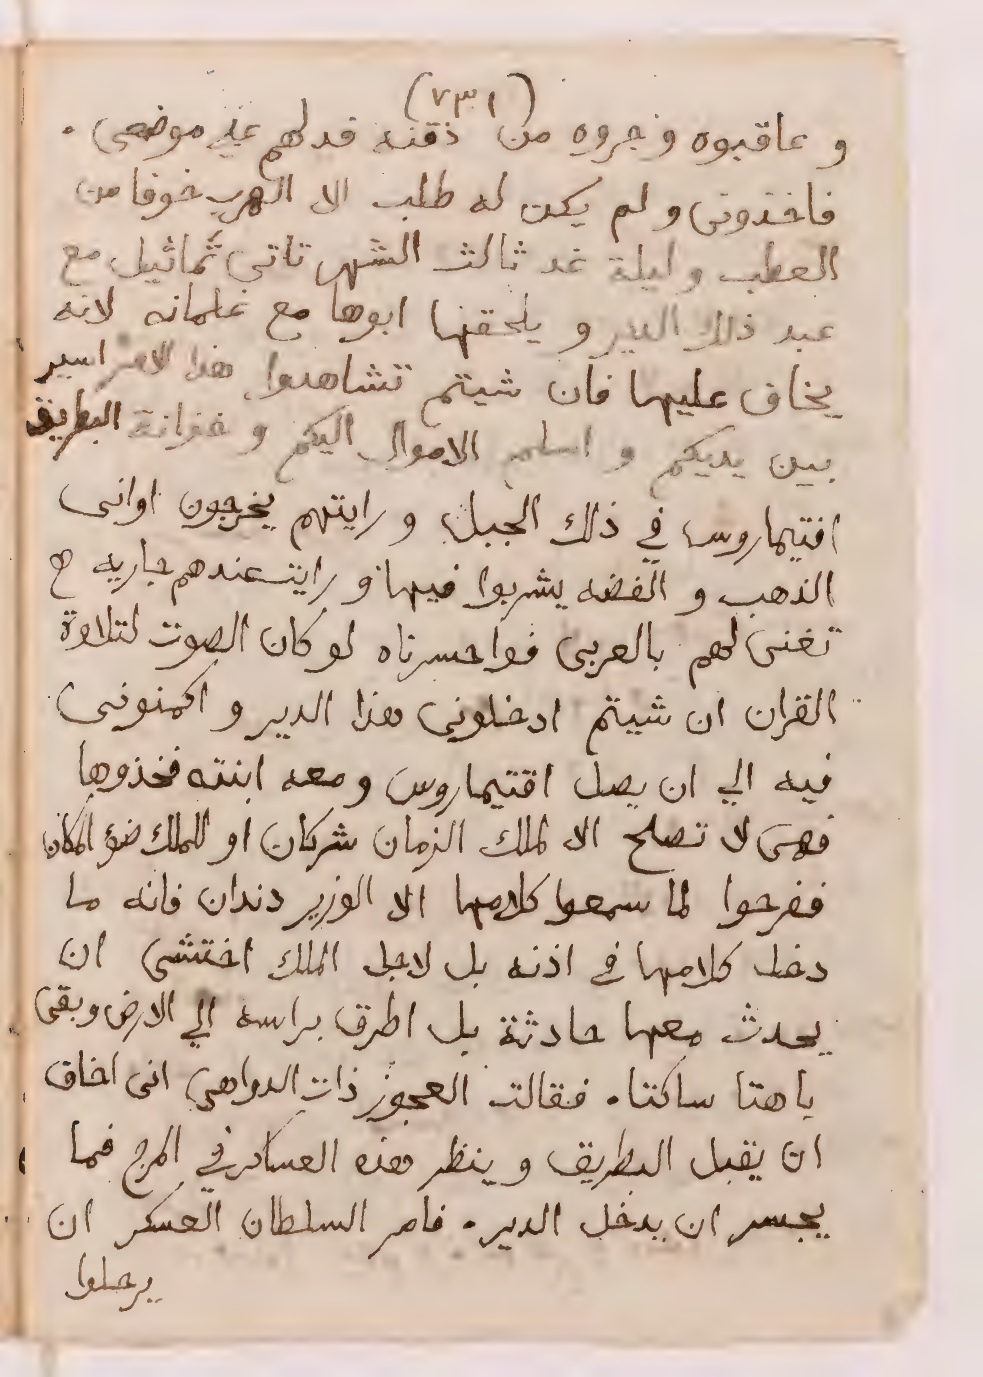 (٧٣١)
و عاقبوه و جروه من ذقنه فدلهم علي موضعي .
فاخذوني و لم يكن له طلب الا الهرب خوفا من
العطب و ليلة غد ثالث الشهر تاتي تماثيل مع
عبد ذلك الدير و يلحقها ابوها مع غلمانه لانه
يخاف عليها فان شيتم تشاهدوا هذا الامر اسير
بين يديكم و اسلم الاموال اليكم و خزانة البطريق
افتيماروس في ذلك الجبل و رايتهم يخرجون اواني
الذهب و الفضه يشربوا فيها و رايت عندهم جاريه
تغني لهم بالعربي فواحسرتاه لو كان الصوت لتلاوة
القران ان شيتم ادخلوني هذا الدير و اكمنوني
فيه الي ان يصل اقتيماروس و معه ابنته فخذوها
فهي لا تصلح الا لملك الزمان شركان او للملك ضؤ المكان
ففرحوا لما سمعوا كلامها الا الوزير دندان فانه ما
دخل كلامها في اذنه بل لاجل الملك اختشي ان
يحدث معها حادثة بل اطرق براسه الي الارض و بقي
باهتا ساكتا . فقالت العجوز ذات الدواهي اني اخاف
ان يقبل البطريق و ينظر هذه العساكر في المرج فما
يجسر ان يدخل الدير . فامر السلطان العسكر ان
يرحلوا